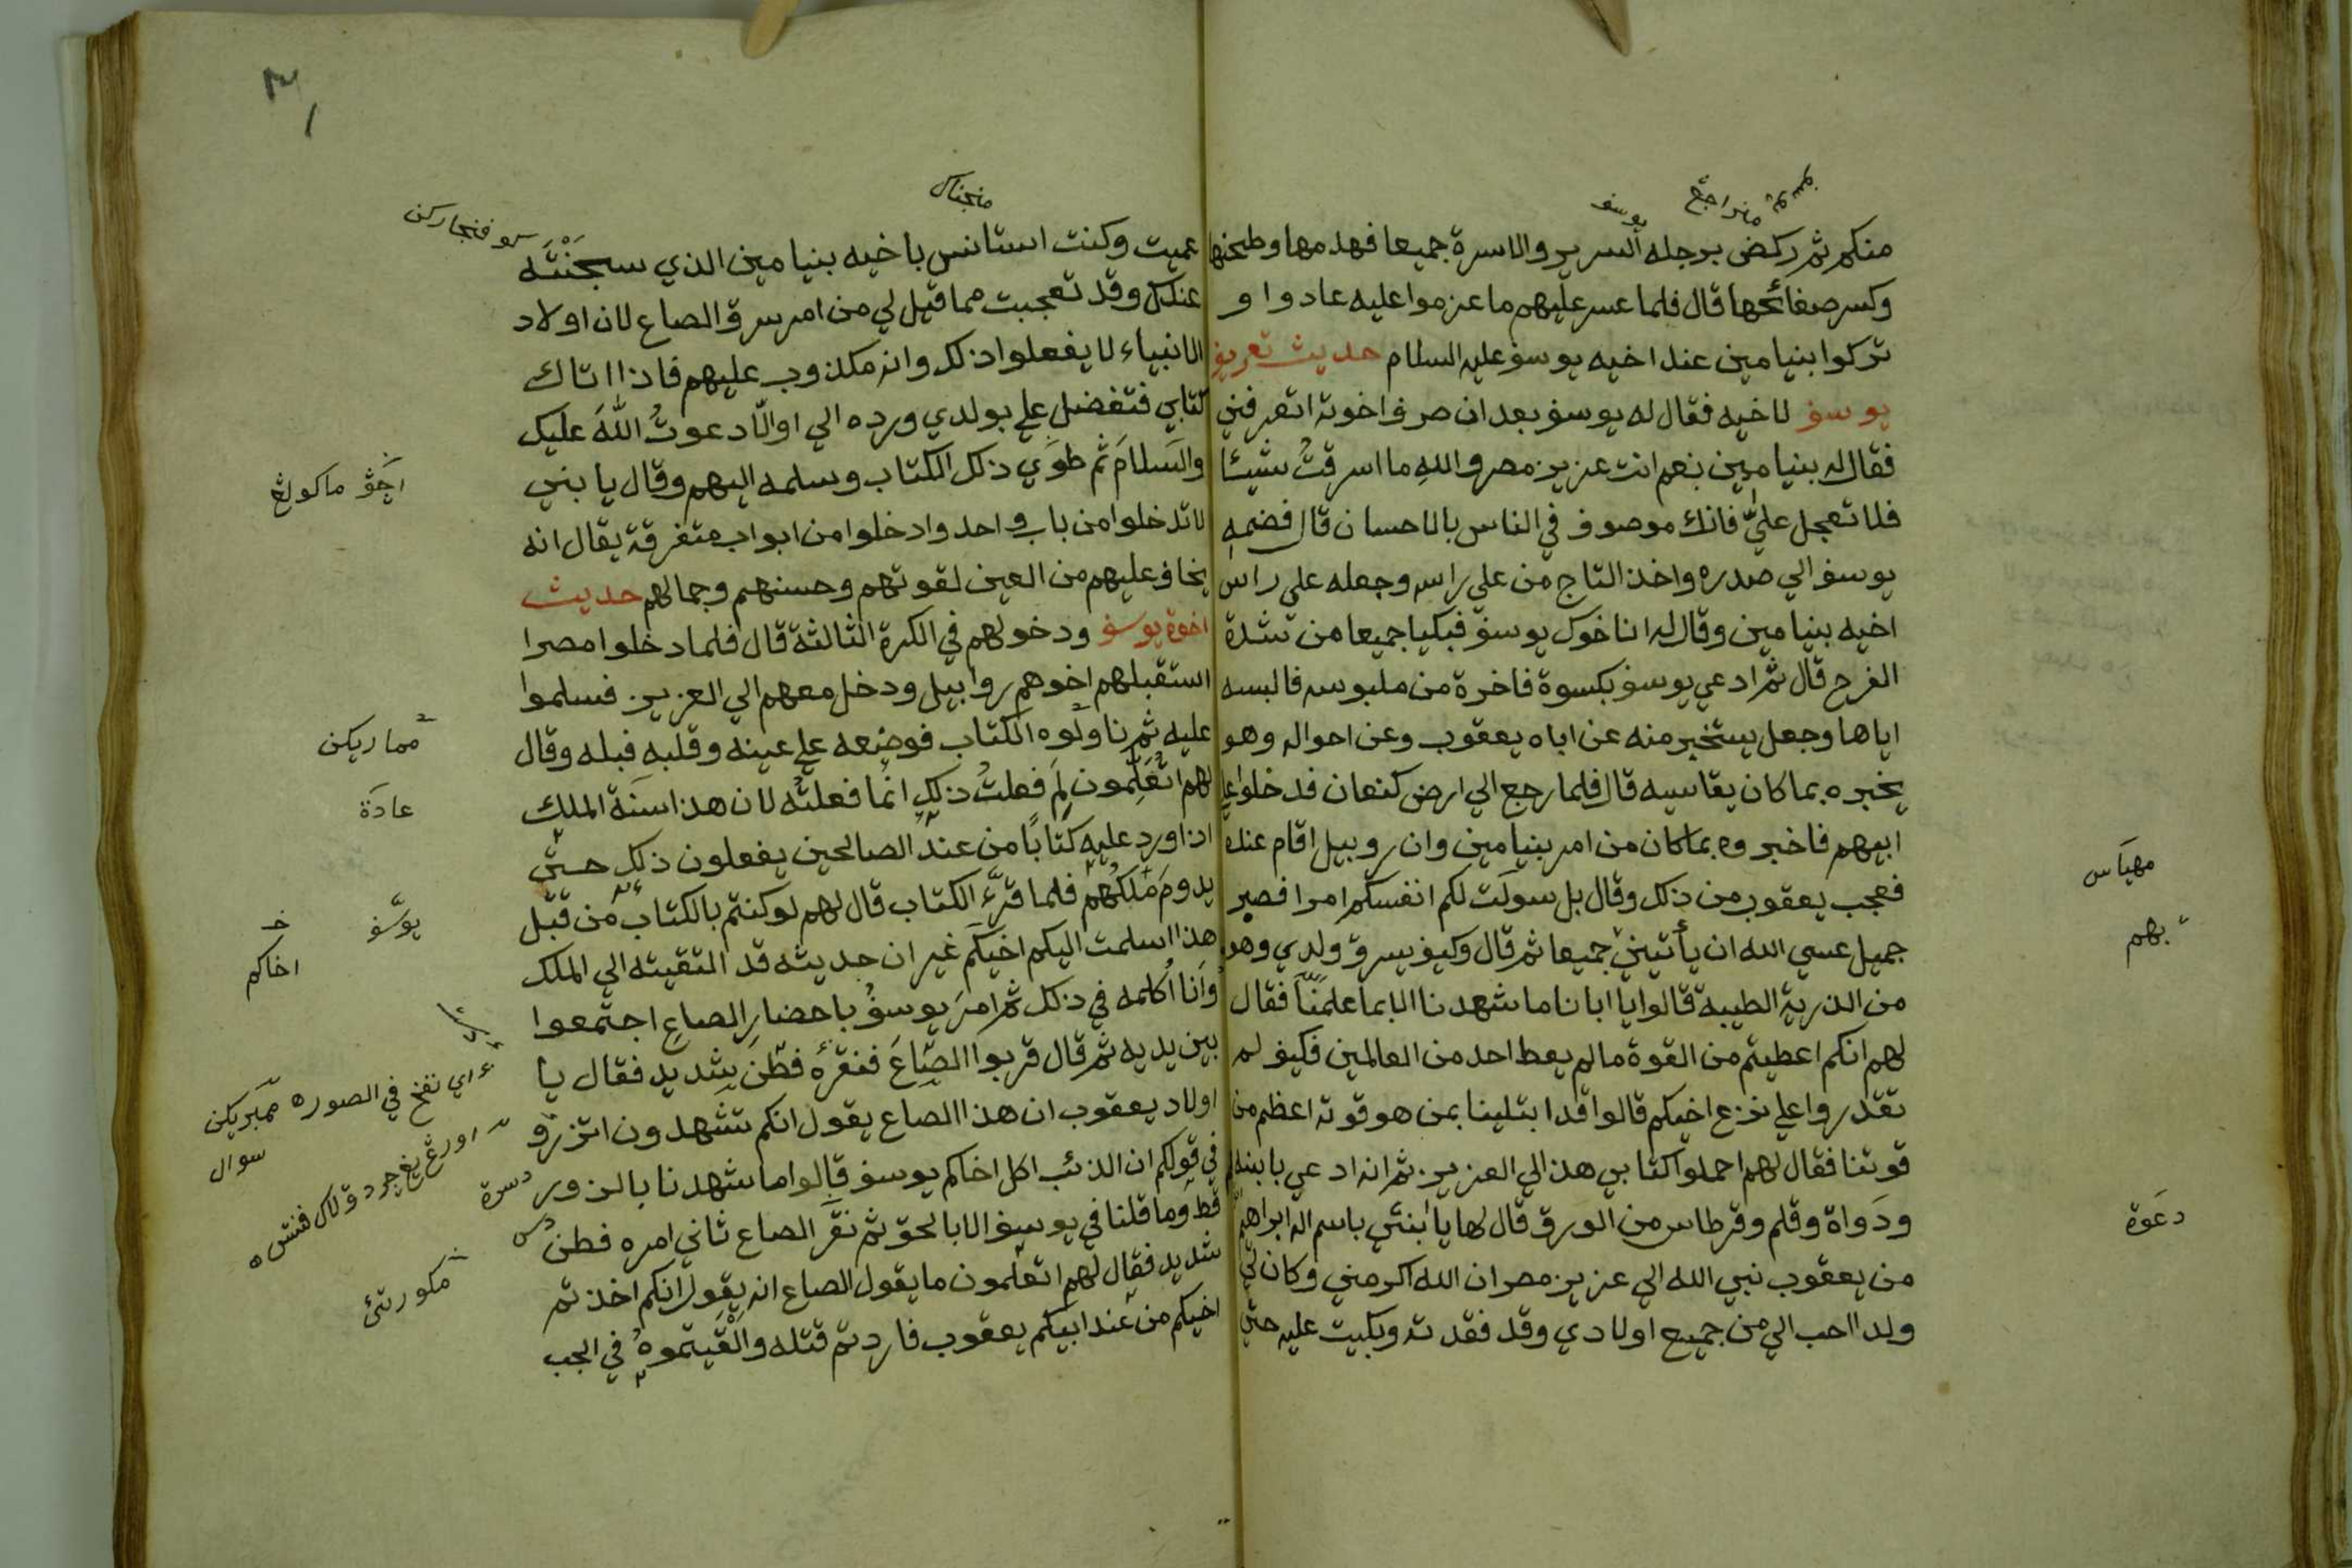 منكم ثم ركض برجله السرير والاسرة جميعا فهدمها وطحنها
وكسر صفائحها قال فلما عسر عليهم ما عزموا عليه عادوا و
تركوا بنيامين عند اخيه يوسف عليه السلام حديث تعريف
يوسف لاخيه فقال له يوسف بعد ان صرف اخوته اتعرفني
فقال له بنيامين نعم انت عزيز مصر والله ما اسرقتُ شيئا
فلا تعجل عليّ فانك موصوف في الناس بالاحسان قال فضمه
يوسف الي صدره واخذ التاج من علي راسه وجعله علي راس
اخيه بنيامين وقال له انا خوك يوسف فبكيا جميعا من شدة
الفرح قال ثم ادعي يوسف بكسوة فاخرة من ملبوسه فالبسه
اياها وجعل يستخبر منه عن اباه يعقوب وعن احواله وهو
يخبره بما كان يقاسيه قال فلما رجع الي ارض كنعان فدخلوا علي
ابيهم فاخبروه بما كان من امر بنيامين وان روبيل اقام عنده
فعجب يعقوب من ذلك وقال بل سولت لكم انفسكم امرا فصبر
جميل عسي الله ان يأتيني جميعا ثم قال وكيف يسرق ولدي وهو
من الذرية الطيبة قالوا يا ابانا ما شهدنا الا بما علمنا فقال
لهم انكم اعطيتم من القوة ما لم يعط احد من العالمين فكيف لم
تقدروا علي نزع اخيكم قالوا قد ابتلينا بمن هو قوته اعظم من
قوتنا فقال لهم احملوا كتابي هذا الي العزيز ثم انه ادعي بابنه
ودَواة وقلم وقرطاس من الورق قال لها يا ابنتي باسم اله ابراهيم
من يعقوب نبي الله الي عزيز مصر ان الله اكرمني وكان لي
ولد احب الي من جميع اولادي وقد فقدته وبكيت عليه حتي
يوسف
مهياس
بهم
دعَوة
عميت وكنت استانس باخيه بنيامين الذي سجَنْتَه
عندك وقد تعجبت مما قيل لي من امر سرق الصاع لان اولاد
الانبياء لا يفعلوا ذلك وانه مكذوب عليهم فاذا اتاك
كتابي فتفضل علي بولدي ورده الي اوالّا دعوتُ اللّهَ عليك
والسَلامَ ثم طوَي ذلك الكتاب وسلمه اليهم وقال يا بني
لا تدخلوا من باب واحد وادخلوا من ابواب متفرقة يقال انه
يخاف عليهم من العين لقوتهم وحسنهم وجمالهم حديث
اخوة يوسف ودخولهم في الكرة الثالثة قال فلما دخلوا مصرا
استقبلهم اخوهم روابيل ودخل معهم الي العزيز فسلموا
عليه ثم ناولوه الكتاب فوضعه علي عينه وقلبه قبله وقال
لهم اتُعَلِّمون لِمَ فعلتُ ذلك انمّا فعلتُه لان هذا سَنَة الملك
اذا ورد عليه كتابًا من عند الصالحين يفعلون ذلك حتي
يدومَ مَلكُهُمْ فلما قرَءَ الكتاب قال لهم لو كنتم بالكتاب من قبْل
هذا اسلمت اليكم اخيكم غير ان حديثه قد التقيته الي الملك
واَنا اُكلمه في ذلك ثم امرَ يوسفُ باحضارِ الصاعِ اجتمعوا
بين يديه ثم قال قربوا الصّاعَ فنقره فطنَّ شديد فقال يا
اولاد يعقوب ان هذا الصاع يقول انكم تشهدون التزوّر
في قولكم ان الذئب اكل اخاكم يوسف قالوا ما شهدنا بالزور
قط وما قلنا في يوسف الا بالحق ثم نقَّر الصاع ثاني امره فطن
شديد فقال لهم اتعلمون ما يقول الصاع انه يقول انكم اخذتم
اخيكم من عند ابيكم يعقوب فاردتم قتله والْقَيتموهُ في الجب
اجڠ ماكولڠ
عادَة
يوسَّف
اخاكم
اي نفخ في الصوره
سوال